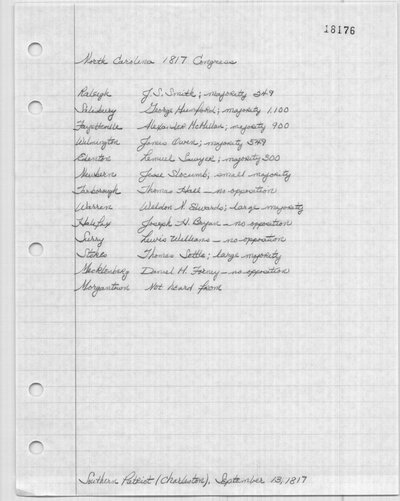 18176
North Carolina 1817 Congress
Raleigh J.S. Smith; majority 249
Salisbury George Mumford; majority 1,100
Fayetteville Alexander McMillan; majority 900
Wilmington James Owen; majority 549
Edenton Lemuel Sawyer; majority 300
Newbern Jesse Slocumb; small majority
Tarborough Thomas Hall – no opposition
Warren Weldon N. Edwards; large majority
Halifax Joseph H. Bryan – no opposition
Surry Lewis Williams – no opposition
Stokes Thomas Settle; large majority
Mecklenburg Daniel M. Forney – no opposition
Morgantown Not heard from
Southern Patriot (Charleston), September 13, 1817